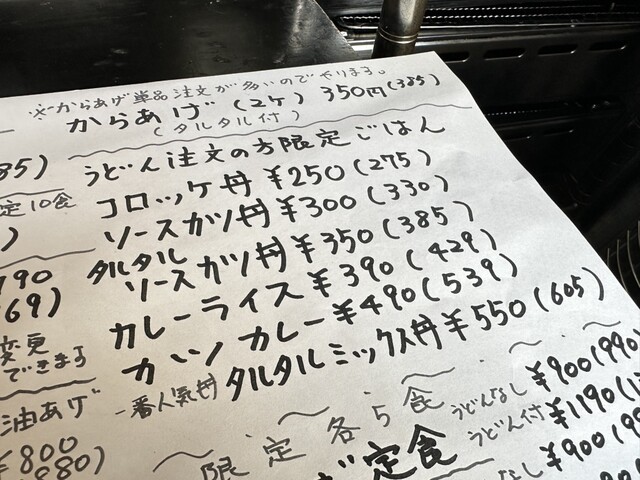 ※からあげ単品注文が多いのでやります。
からあげ(2ケ) 350円(385)
(タルタル付)
うどん注文の方限定ごはん
コロッケ丼 ¥250(275)
ソースカツ丼 ¥300(330)
タルタル
ソースカツ丼 ¥350(385)
カレーライス ¥390(429)
カツカレー ¥490(539)
一番人気丼 タルタルミックス丼 ¥550(605)
限定各5食
うどんなし ¥900(990
定食 うどん付 ¥1190(
なし ¥900(
85)
定10食
)
790
69)
変更
できます
油あげ
¥800
880)